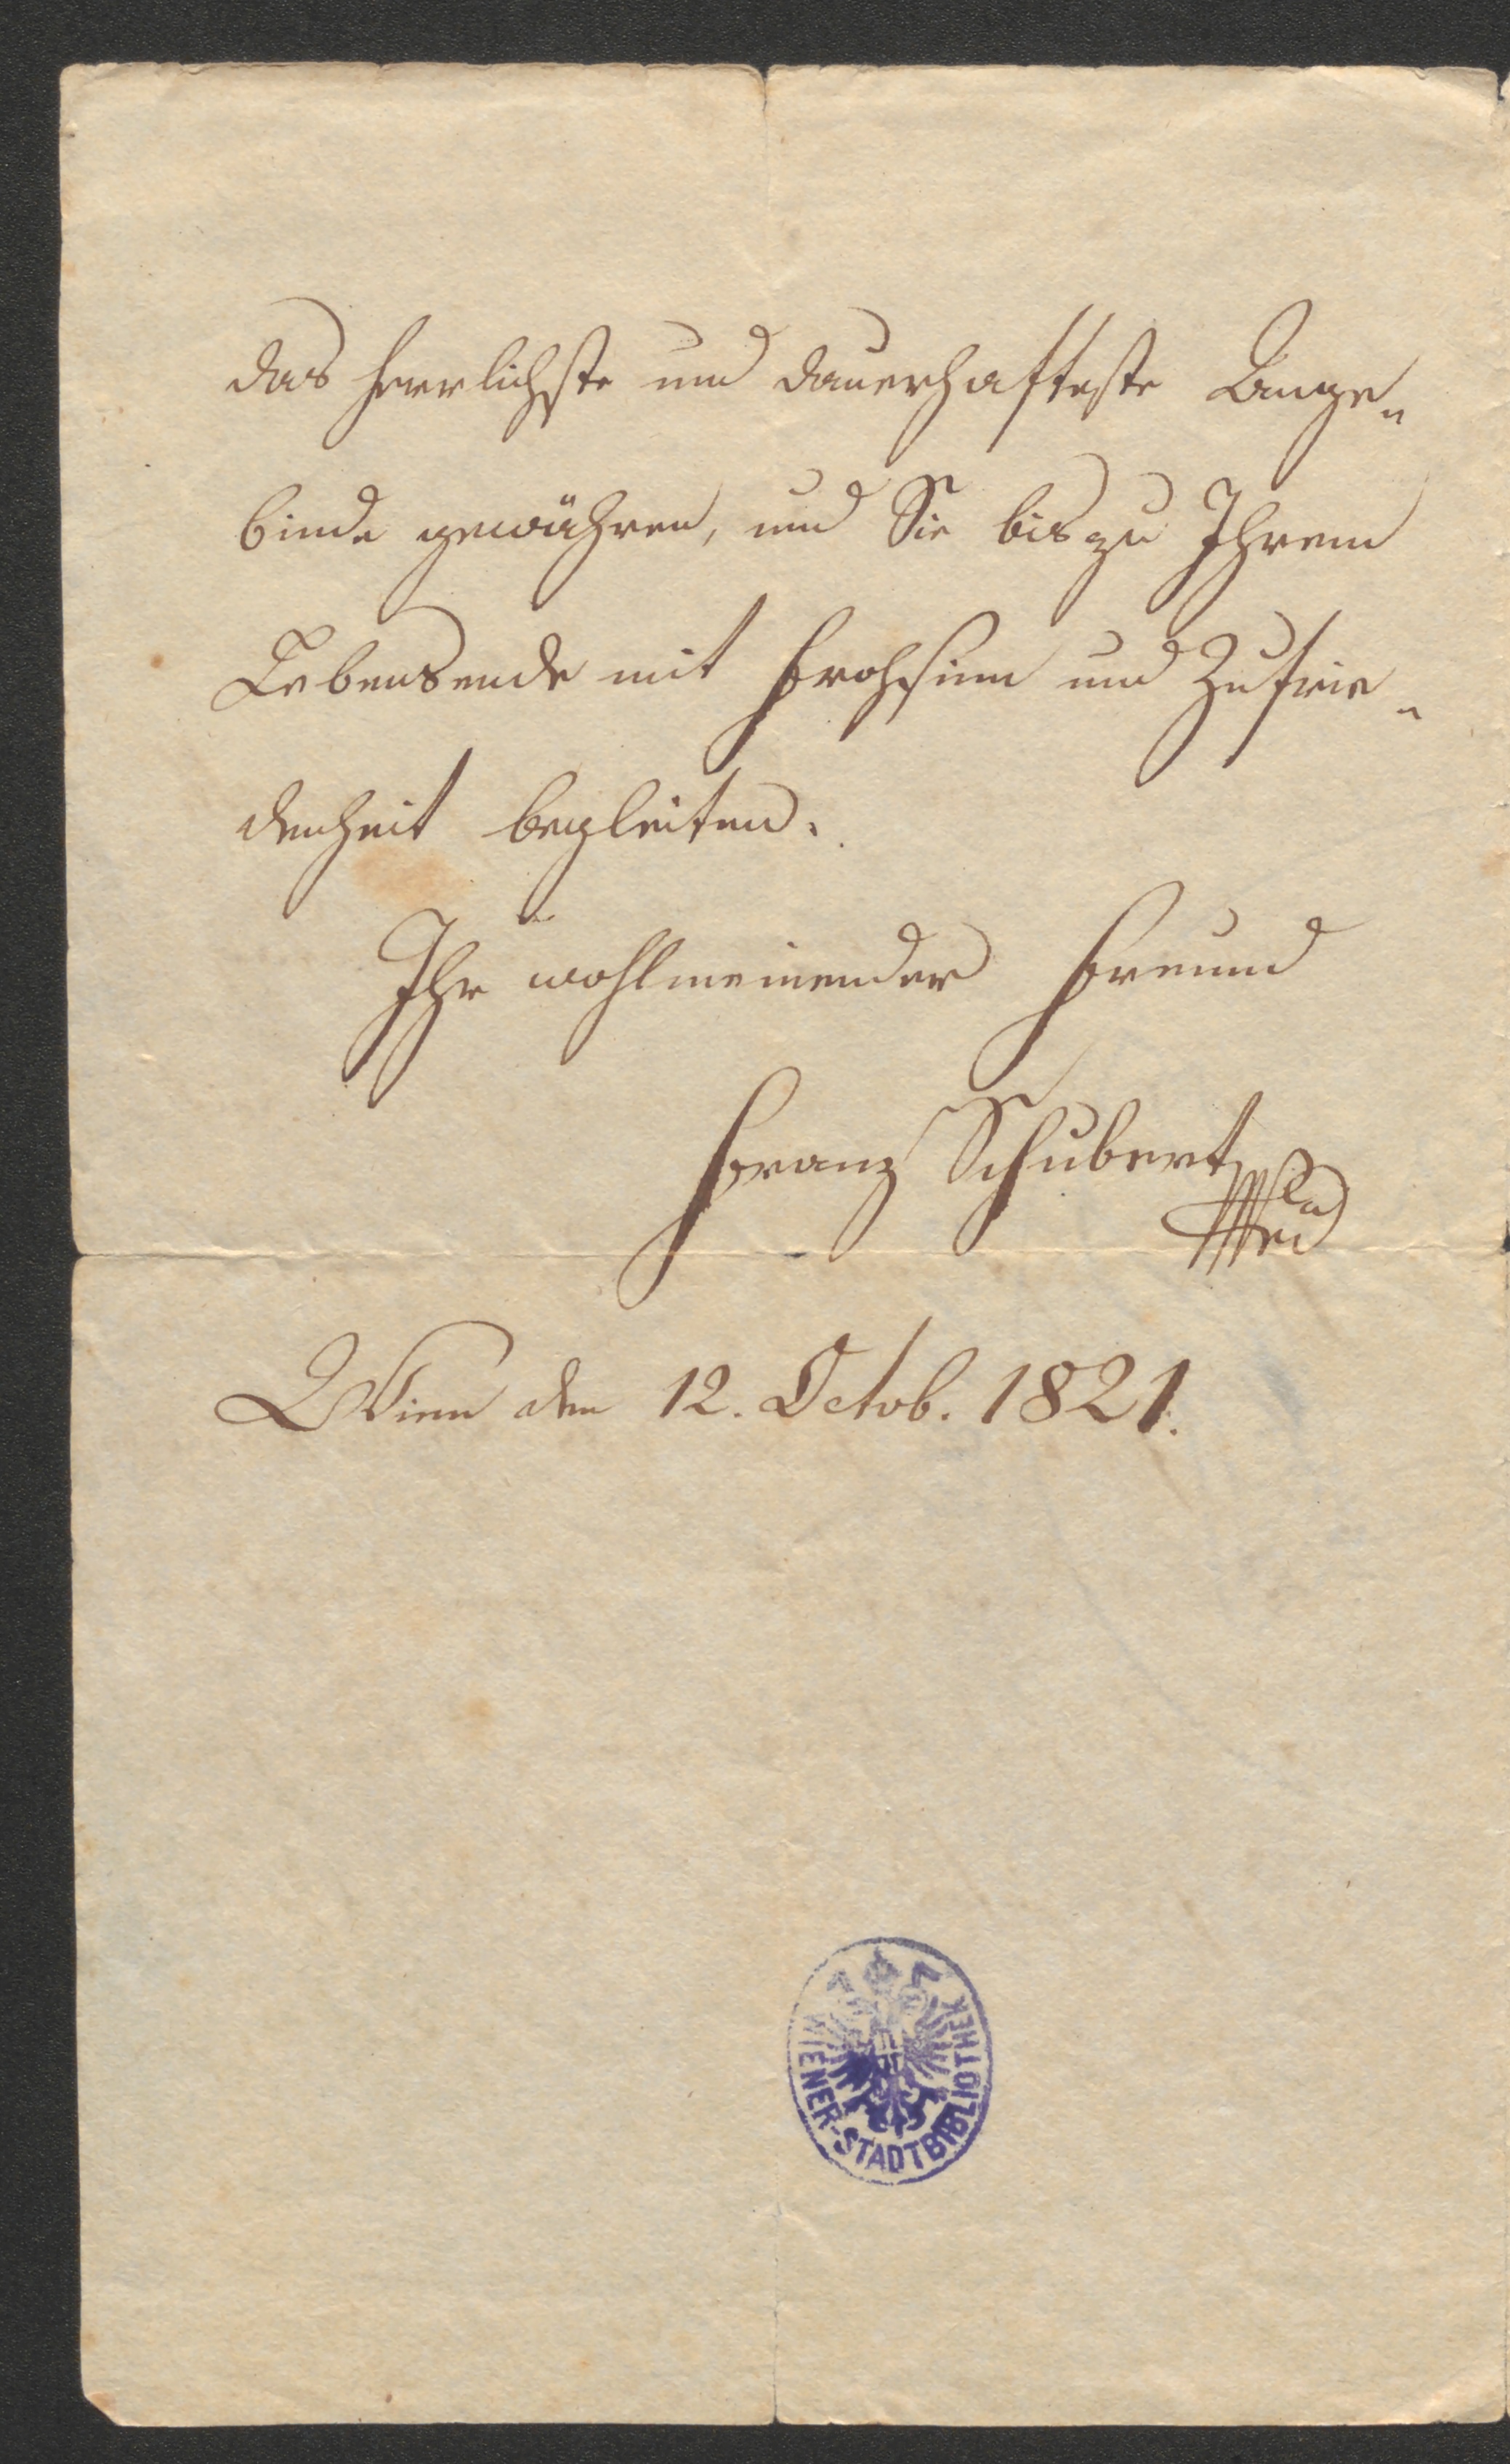 das herrlichste und dauerhafteste Ange-
binde gewähren, und Sie bis zu Ihrem
Lebensende mit Frohsinn und Zufrie-
denheit begleiten.
Ihr wohlmeinender Freund
Franz Schubert
Wien den 12. Octob. 1821.
WIENER-STADTBIBLIOTHEK